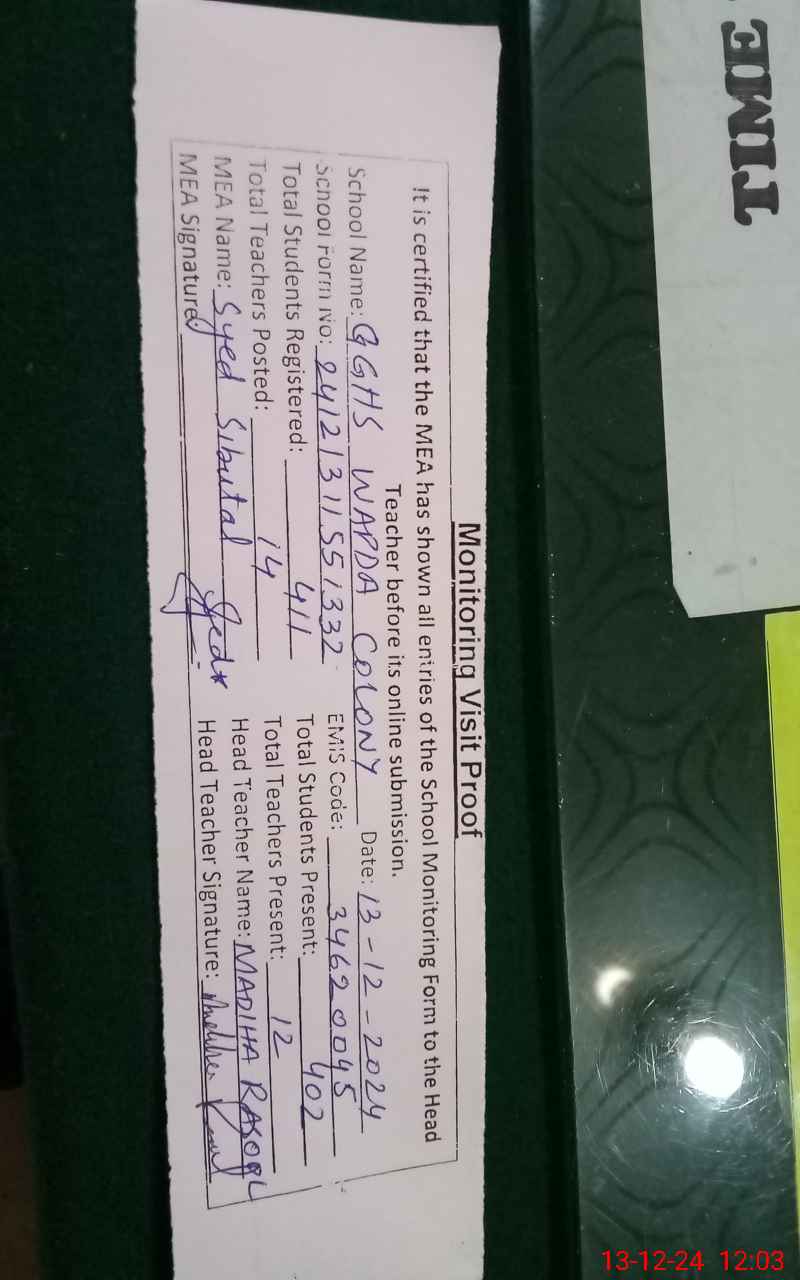 TIME
Monitoring Visit Proof
It is certified that the MEA has shown all entries of the School Monitoring Form to the Head
Teacher before its online submission.
School Name: GGHS WAPDA COLONY Date: 13-12-2024
School Form No: 24121311551332 EMIS Code: 34620045
Total Students Registered: 411 Total Students Present: 402
Total Teachers Posted: 14 Total Teachers Present: 12
MEA Name: Syed Sibutal Head Teacher Name: MADIHA RASOOL
MEA Signature Head Teacher Signature:
13-12-24 12:03